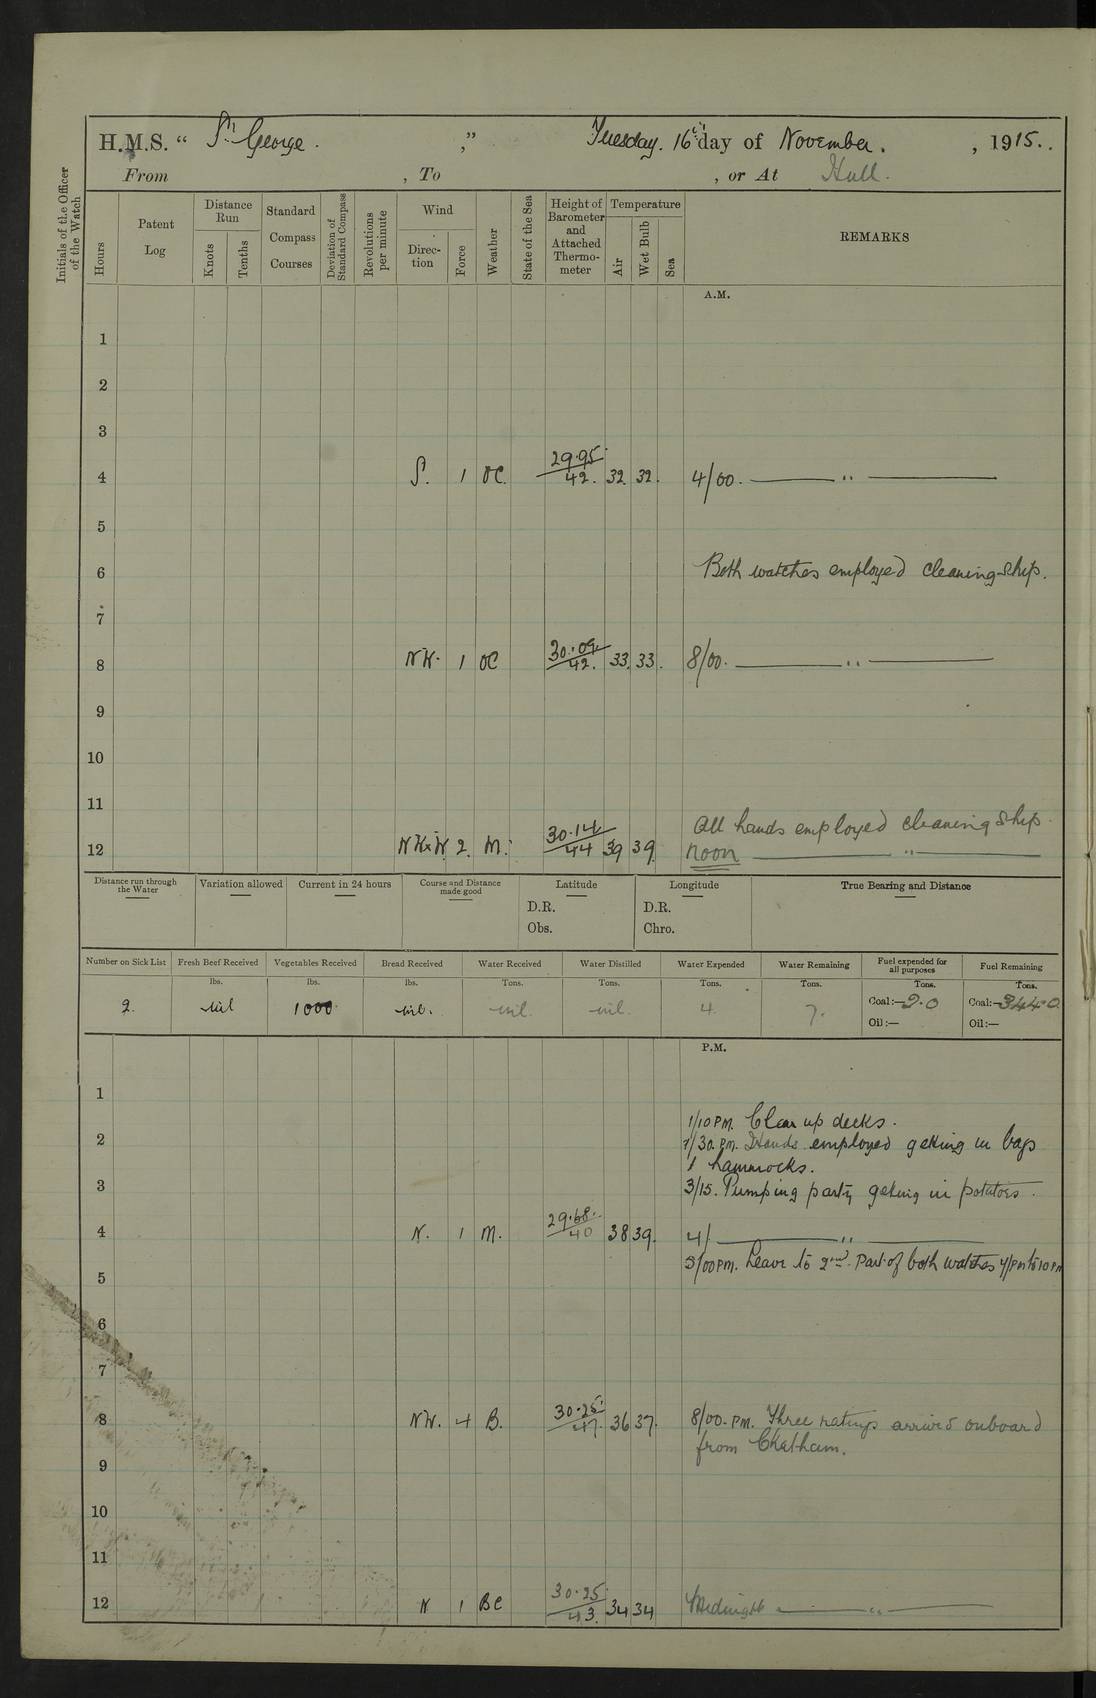 H.M.S. “ St George. ,” Tuesday. 16th day of November. , 1915..
From , To , or At Hull.
Initials of the Officer of the Watch
Hours
Patent Log
Distance Run
Knots
Tenths
Standard Compass Courses
Deviation of Standard Compass
Revolutions per minute
Wind
Direc- tion
Force
Weather
State of the Sea
Height of Barometer and Attached Thermo- meter
Temperature
Air
Wet Bulb
Sea
REMARKS
A.M.
1
2
3
4 S. 1 OC. 29.95 / 42. 32. 32. 4/00. ——— " ———
5
6 Both watches employed cleaning ship.
7
8 1 OC 30.09. / 42. 33. 33. 8/00. ——— " ———
9
10
11
All hands employed cleaning ship.
12 2. M. 30.14 / 44 39 39. Noon ——— " ———
Distance run through the Water
Variation allowed
Current in 24 hours
Course and Distance made good
Latitude
D.R.
Obs.
Longitude
D.R.
Chro.
True Bearing and Distance
Number on Sick List Fresh Beef Received Vegetables Received Bread Received Water Received Water Distilled Water Expended Water Remaining Fuel expended for all purposes Fuel Remaining
lbs. lbs. lbs. Tons. Tons. Tons. Tons. Tons. Tons.
2. nil 1000 nil. nil. nil. 4 7. Coal:—20 Coal:—3440
Oil:— Oil:—
P.M.
1
1/10 PM. Clear up decks.
2 1/30. PM. Hands employed getting in bags
& hammocks.
3 3/15. Pumping party getting in potatoes.
4 N. 1 M. 29.68. / 40 38 39. 4/ ——— " ———
5/00 PM. Leave to 2nd. Part of both watches 4/PM to 10 PM
5
6
7
8 NW. 4 B. 30.25. / 47. 36 37. 8/00. PM. Three ratings arrived onboard
from Chatham.
9
10
11
12 N 1 BC 30.25 / 43. 34 34 Midnight ——— " ———